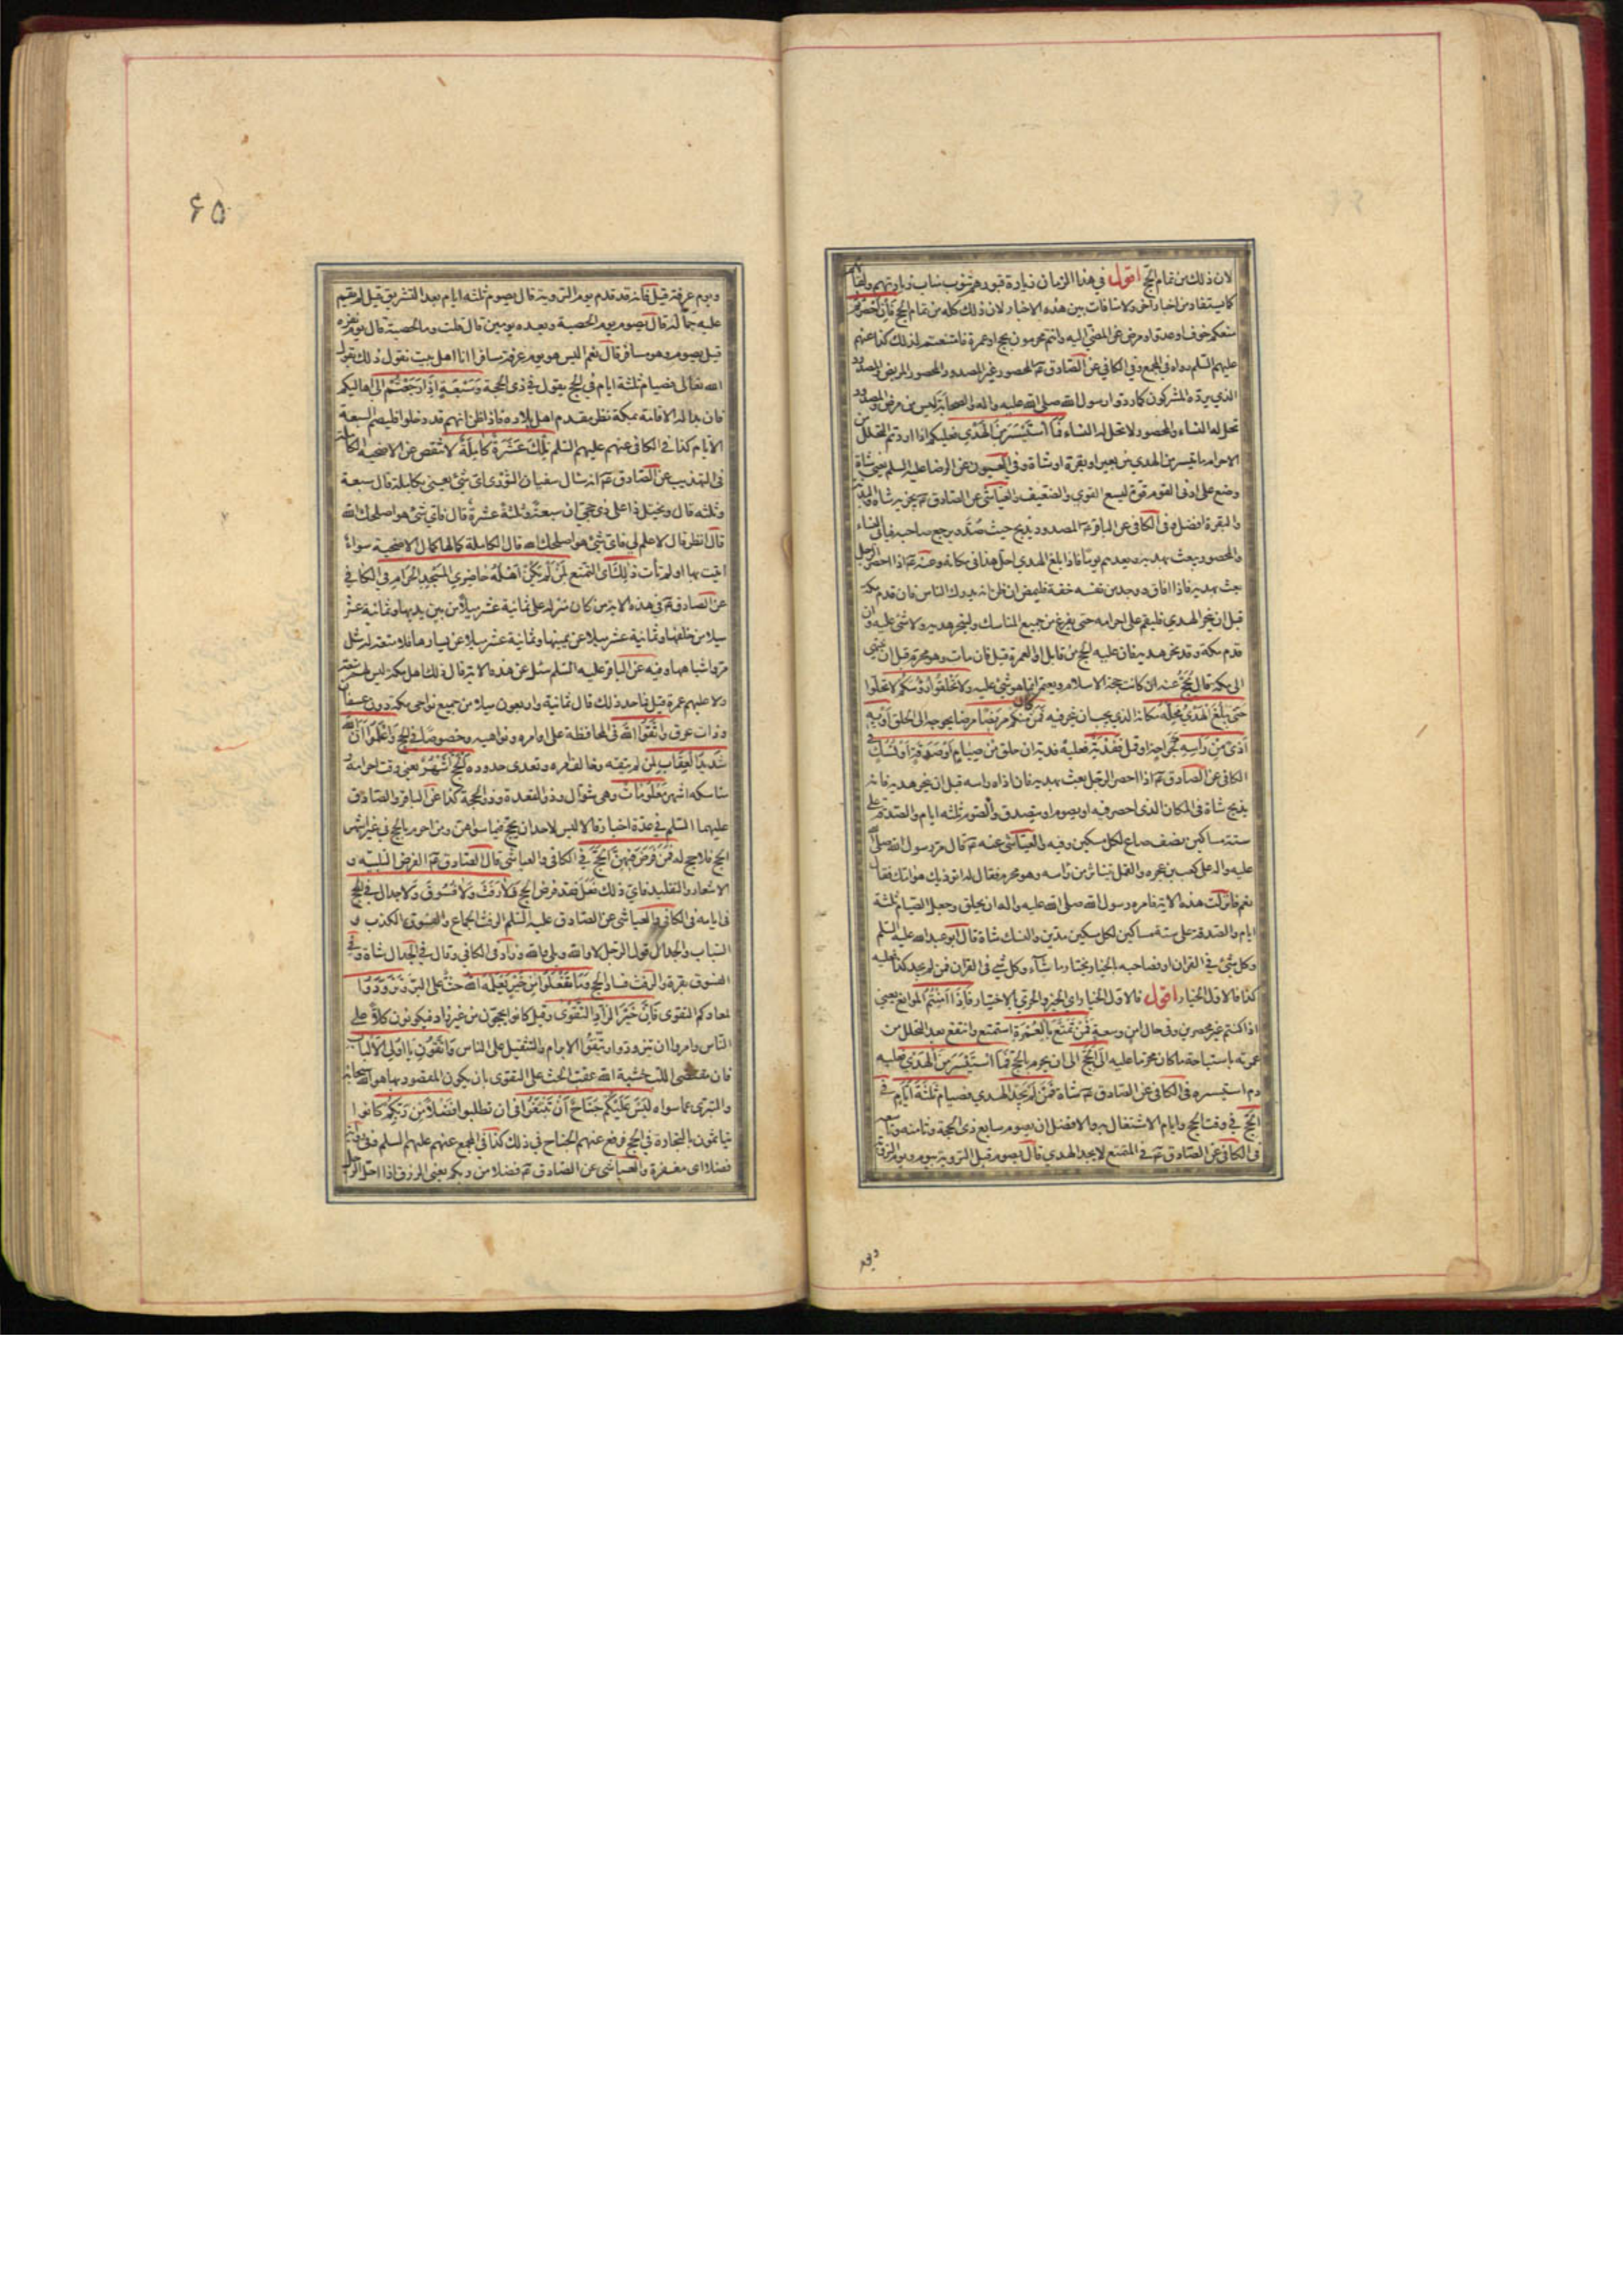 لان ذلك من تمام الحج اقول في هذا الزمان زيارة قبورهم تنوب مناب زيارتهم ولقائهم
كما يستفاد من اخبار اخر ولا منافات بين هذه الاخبار لان ذلك كله من تمام الحج فان احصرتم
منعكم خوف او عدو او مرض عن المضي اليه وانتم محرمون بحج او عمرة فامتنعتم لذلك كذا عنهم
عليهم السلم رواه في المجمع وفي الكافي عن الصادق ع المحصور غير المصدود والمحصور المريض والمصدود
الذي يرده المشركون كما ردوا رسول الله صلى الله عليه واله والصحابة ليس من مرض والمصدود
تحل له النساء والمحصور لا تحل له النساء فما استيسر من الهدي فعليكم اذا اردتم التحلل من
الاحرام ما تيسر من الهدي من بعير او بقرة او شاة وفي العيون عن الرضا عليه السلم يعني شاة
وضع على ادنى القوم قوة ليسع القوي والضعيف والعياشي عن الصادق ع يجزيه شاة والبدنة
والبقرة افضل وفي الكافي عن الباقر ع المصدود يذبح حيث صد ويرجع صاحبه فياتي النساء
والمحصور يبعث بهديه ويعدهم يوما فاذا بلغ الهدي احل هذا في مكانه وعنه ع اذا احصر الرجل
بعث بهديه فاذا افاق ووجد من نفسه خفة فليمض ان ظن انه يدرك الناس فان قدم مكة
قبل ان ينحر الهدي فليقم على احرامه حتى يفرغ من جميع المناسك ولينحر هديه ولا شئ عليه وان
قدم مكة وقد نحر هديه فان عليه الحج من قابل او العمرة قيل فان مات وهو محرم قبل ان ينتهي
الى مكة قال يحج عنه ان كانت حجة الاسلام ويعتمر انما هو شئ عليه ولا تحلقوا رؤسكم لا تحلوا
حتى يبلغ الهدي محله مكانه الذي يجب ان ينحر فيه فمن كان منكم مريضا مرضا يحوجه الى الحلق او به
اذى من راسه كجراحة او قمل ففدية فعليه فدية ان حلق من صيام او صدقة او نسك في
الكافي عن الصادق ع اذا احصر الرجل بعث بهديه فان اذاه راسه قبل ان ينحر هديه فانه
يذبح شاة في المكان الذي احصر فيه او يصوم او يتصدق والصوم ثلثة ايام والصدقة على
ستة مساكين نصف صاع لكل مسكين وفيه والعياشي عنه ع قال مر رسول الله صلى الله
عليه واله على كعب بن عجره والقمل يتناثر من راسه وهو محرم فقال له اتؤذيك هوامك فقال
نعم فانزلت هذه الاية فامره رسول الله صلى الله عليه واله ان يحلق وجعل الصيام ثلثة
ايام والصدقة على ستة مساكين لكل مسكين مدين والنسك شاة قال ابو عبد الله عليه السلم
وكل شئ في القران او فصاحبه بالخيار يختار ما شاء وكل شئ في القران فمن لم يجد كذا فعليه
كذا فالاول الخيار اقول فالاول الخيار اي الخير والحري بالاختيار فاذا امنتم الموانع يعني
اذا كنتم غير محصرين وفي حال امن وسعة فمن تمتع بالعمرة استمتع وانتفع بعد التحلل من
عمرته باستباحة ما كان محرما عليه الى الحج الى ان يحرم بالحج فما استيسر من الهدي فعليه
دم استيسره في الكافي عن الصادق ع شاة فمن لم يجد الهدي فصيام ثلثة ايام في
الحج في وقت الحج وايام الاشتغال به والافضل ان يصوم سابع ذي الحجة وثامنه وتاسعه
في الكافي عن الصادق ع في المتمتع لا يجد الهدي قال يصوم قبل التروية بيوم ويوم التروية
ويوم
۶۵
ويوم عرفة قيل فانه قد قدم يوم التروية قال يصوم ثلثه ايام بعد التشريق قيل لم يقم
عليه جماله قال يصوم يوم الحصبة وبعده يومين قال قلت وما الحصبة قال يوم نفره
قيل يصوم وهو مسافر قال نعم اليس هو يوم عرفة مسافرا انا اهل بيت نقول ذلك بقول
الله تعالى فصيام ثلثة ايام في الحج يقول في ذي الحجة وسبعة اذا رجعتم الى اهاليكم
فان بدا له الاقامة بمكة نظر مقدم اهل بلاده فاذا ظن انهم قد دخلوا فليصم السبعة
الايام كذا في الكافي عنهم عليهم السلم تلك عشرة كاملة لا تنقص عن الاضحية الكاملة
في التهذيب عن الصادق ع انه سال سفيان الثوري اي شئ يعني بكاملة قال سبعة
وثلثه قال ويختل ذا على ذي حجى ان سبعة وثلثة عشرة قال فاي شئ هو اصلحك الله
قال انظر قال لا علم لي فاي شئ هو اصلحك الله قال الكاملة كمالها كمال الاضحية سواء
اتيت بها او لم تات ذلك اي التمتع لمن لم يكن اهله حاضري المسجد الحرام في الكافي
عن الصادق ع في هذه الاية من كان منزله على ثمانية عشر ميلا من بين يديها وثمانية عشر
ميلا من خلفها وثمانية عشر ميلا عن يمينها وثمانية عشر ميلا عن يسارها فلا متعة له مثل
مر واشباهها وفيه عن الباقر عليه السلم سئل عن هذه الاية قال ذلك اهل مكة ليس لهم متعة
ولا عليهم عمرة قيل فما حد ذلك قال ثمانية واربعون ميلا من جميع نواحي مكة دون عسفان
وذات عرق واتقوا الله في المحافظة على اوامره ونواهيه وخصوصا في الحج واعلموا ان الله
شديد العقاب لمن لم يتقه وخالف امره وتعدى حدوده الحج اشهر يعني وقت احرامه و
مناسكه اشهر معلومات وهي شوال وذو القعدة وذو الحجة كذا عن الباقر والصادق
عليهما السلم في عدة اخبار قالا ليس لاحد ان يحج فيما سواهن ومن احرم بالحج في غير اشهر
الحج فلا حج له فمن فرض فيهن الحج في الكافي والعياشي قال الصادق ع الفرض التلبيه و
الاشعار والتقليد فاي ذلك فعل فقد فرض الحج فلا رفث ولا فسوق ولا جدال في الحج
في ايامه في الكافي والعياشي عن الصادق عليه السلم الرفث الجماع والفسوق الكذب و
السباب والجدال قول الرجل لا والله وبلى والله وزاد في الكافي وقال في الجدال شاة وفي
الفسوق بقرة والرفث فساد الحج وما تفعلوا من خير يعلمه الله حث على البر وتزودوا
لمعادكم التقوى فان خير الزاد التقوى وقيل كانوا يحجون من غير زاد فيكونون كلا على
الناس وامروا ان يتزودوا ويتقوا الابرام والتثقيل على الناس واتقون يا اولي الالباب
فان مقتضى اللب خشية الله عقب الحث على التقوى بان يكون المقصود بها هو الله سبحانه
والتبري عما سواه ليس عليكم جناح ان تبتغوا في ان تطلبوا فضلا من ربكم كانوا
يتاثمون بالتجارة في الحج فرفع عنهم الجناح في ذلك كذا في المجمع عنهم عليهم السلم وفي رواية
فضلا اي مغفرة والعياشي عن الصادق ع فضلا من ربكم يعني الرزق اذا احل الرجل